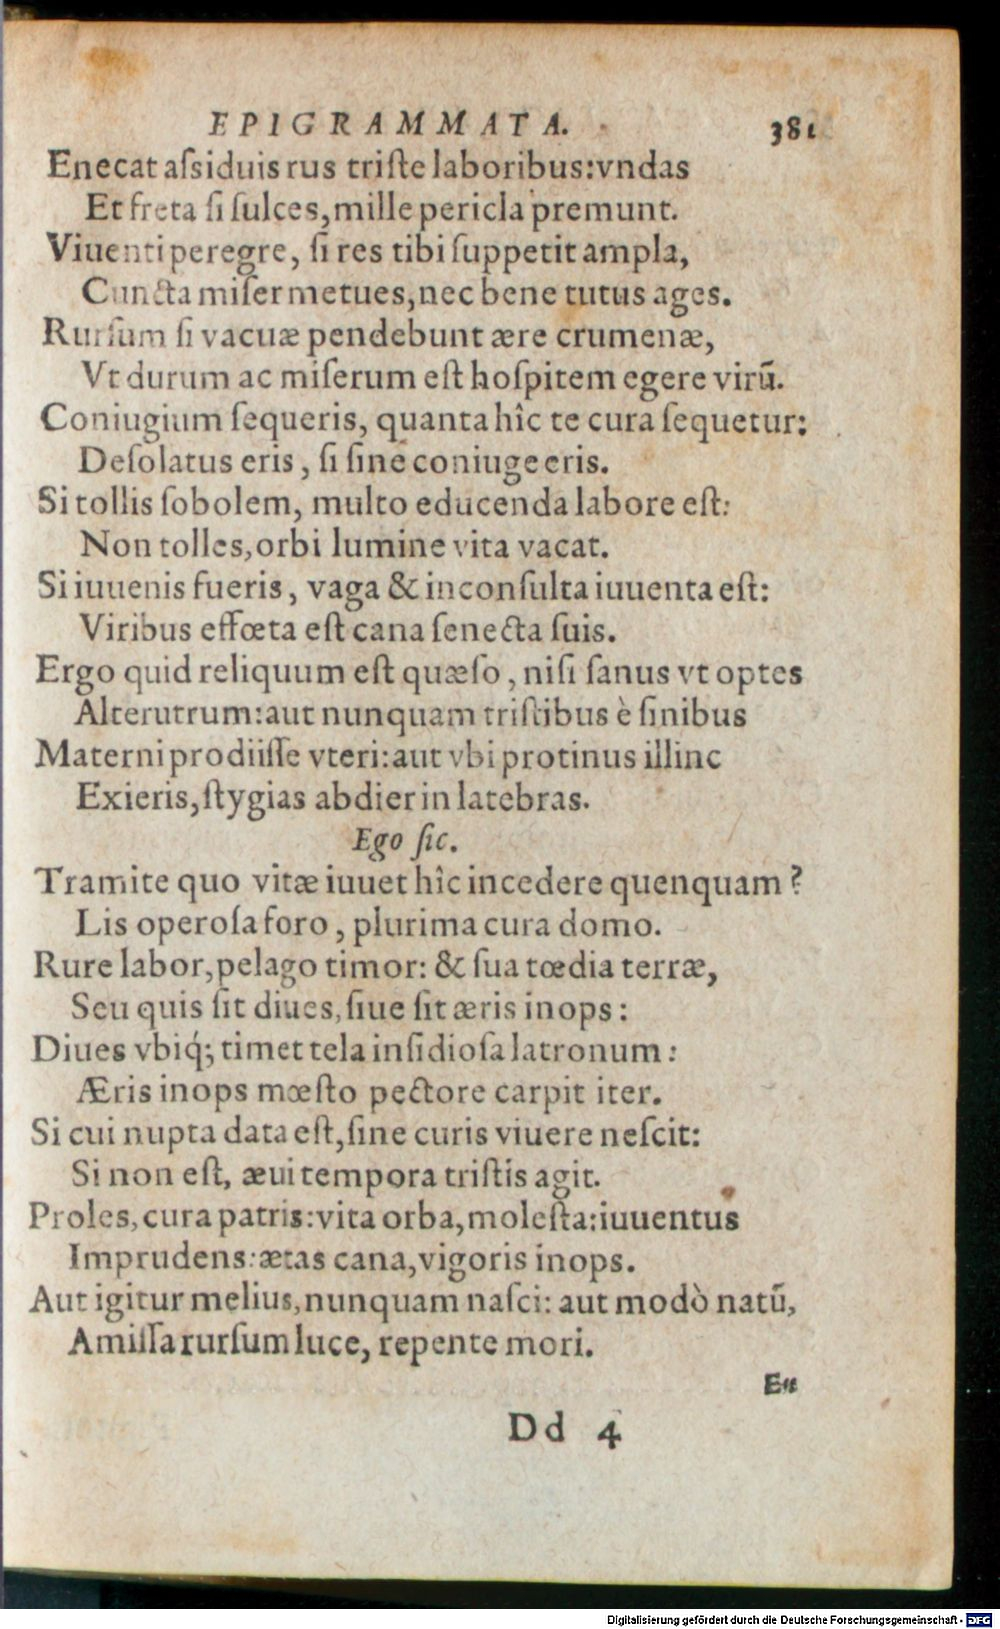 EPIGRAMMATA. 381
Enecat aſsiduis rus triſte laboribus:vndas
Et freta ſi ſulces, mille pericla premunt.
Viuenti peregre, ſi res tibi ſuppetit ampla,
Cuncta miſer metues, nec bene tutus ages.
Rurſum ſi vacuæ pendebunt ære crumenæ,
Vt durum ac miſerum eſt hoſpitem egere virū.
Coniugium ſequeris, quanta hîc te cura ſequetur:
Deſolatus eris, ſi ſine coniuge eris.
Si tollis ſobolem, multo educenda labore eſt:
Non tolles, orbi lumine vita vacat.
Si iuuenis fueris, vaga & inconſulta iuuenta eſt:
Viribus effœta eſt cana ſenecta ſuis.
Ergo quid reliquum eſt quæſo, niſi ſanus vt optes
Alterutrum:aut nunquam triſtibus è ſinibus
Materni prodiiſſe vteri:aut vbi protinus illinc
Exieris, ſtygias abdier in latebras.
Ego ſic.
Tramite quo vitæ iuuet hîc incedere quenquam?
Lis operoſa foro, plurima cura domo.
Rure labor, pelago timor: & ſua tœdia terræ,
Seu quis ſit diues, ſiue ſit æris inops:
Diues vbiq́; timet tela inſidioſa latronum:
Æris inops mœſto pectore carpit iter.
Si cui nupta data eſt, ſine curis viuere neſcit:
Si non eſt, æui tempora triſtis agit.
Proles, cura patris:vita orba, moleſta:iuuentus
Imprudens:ætas cana, vigoris inops.
Aut igitur melius, nunquam naſci: aut modò natū,
Amiſſa rurſum luce, repente mori.
En
Dd 4
Digitalisierung gefördert durch die Deutsche Forschungsgemeinschaft - DFG